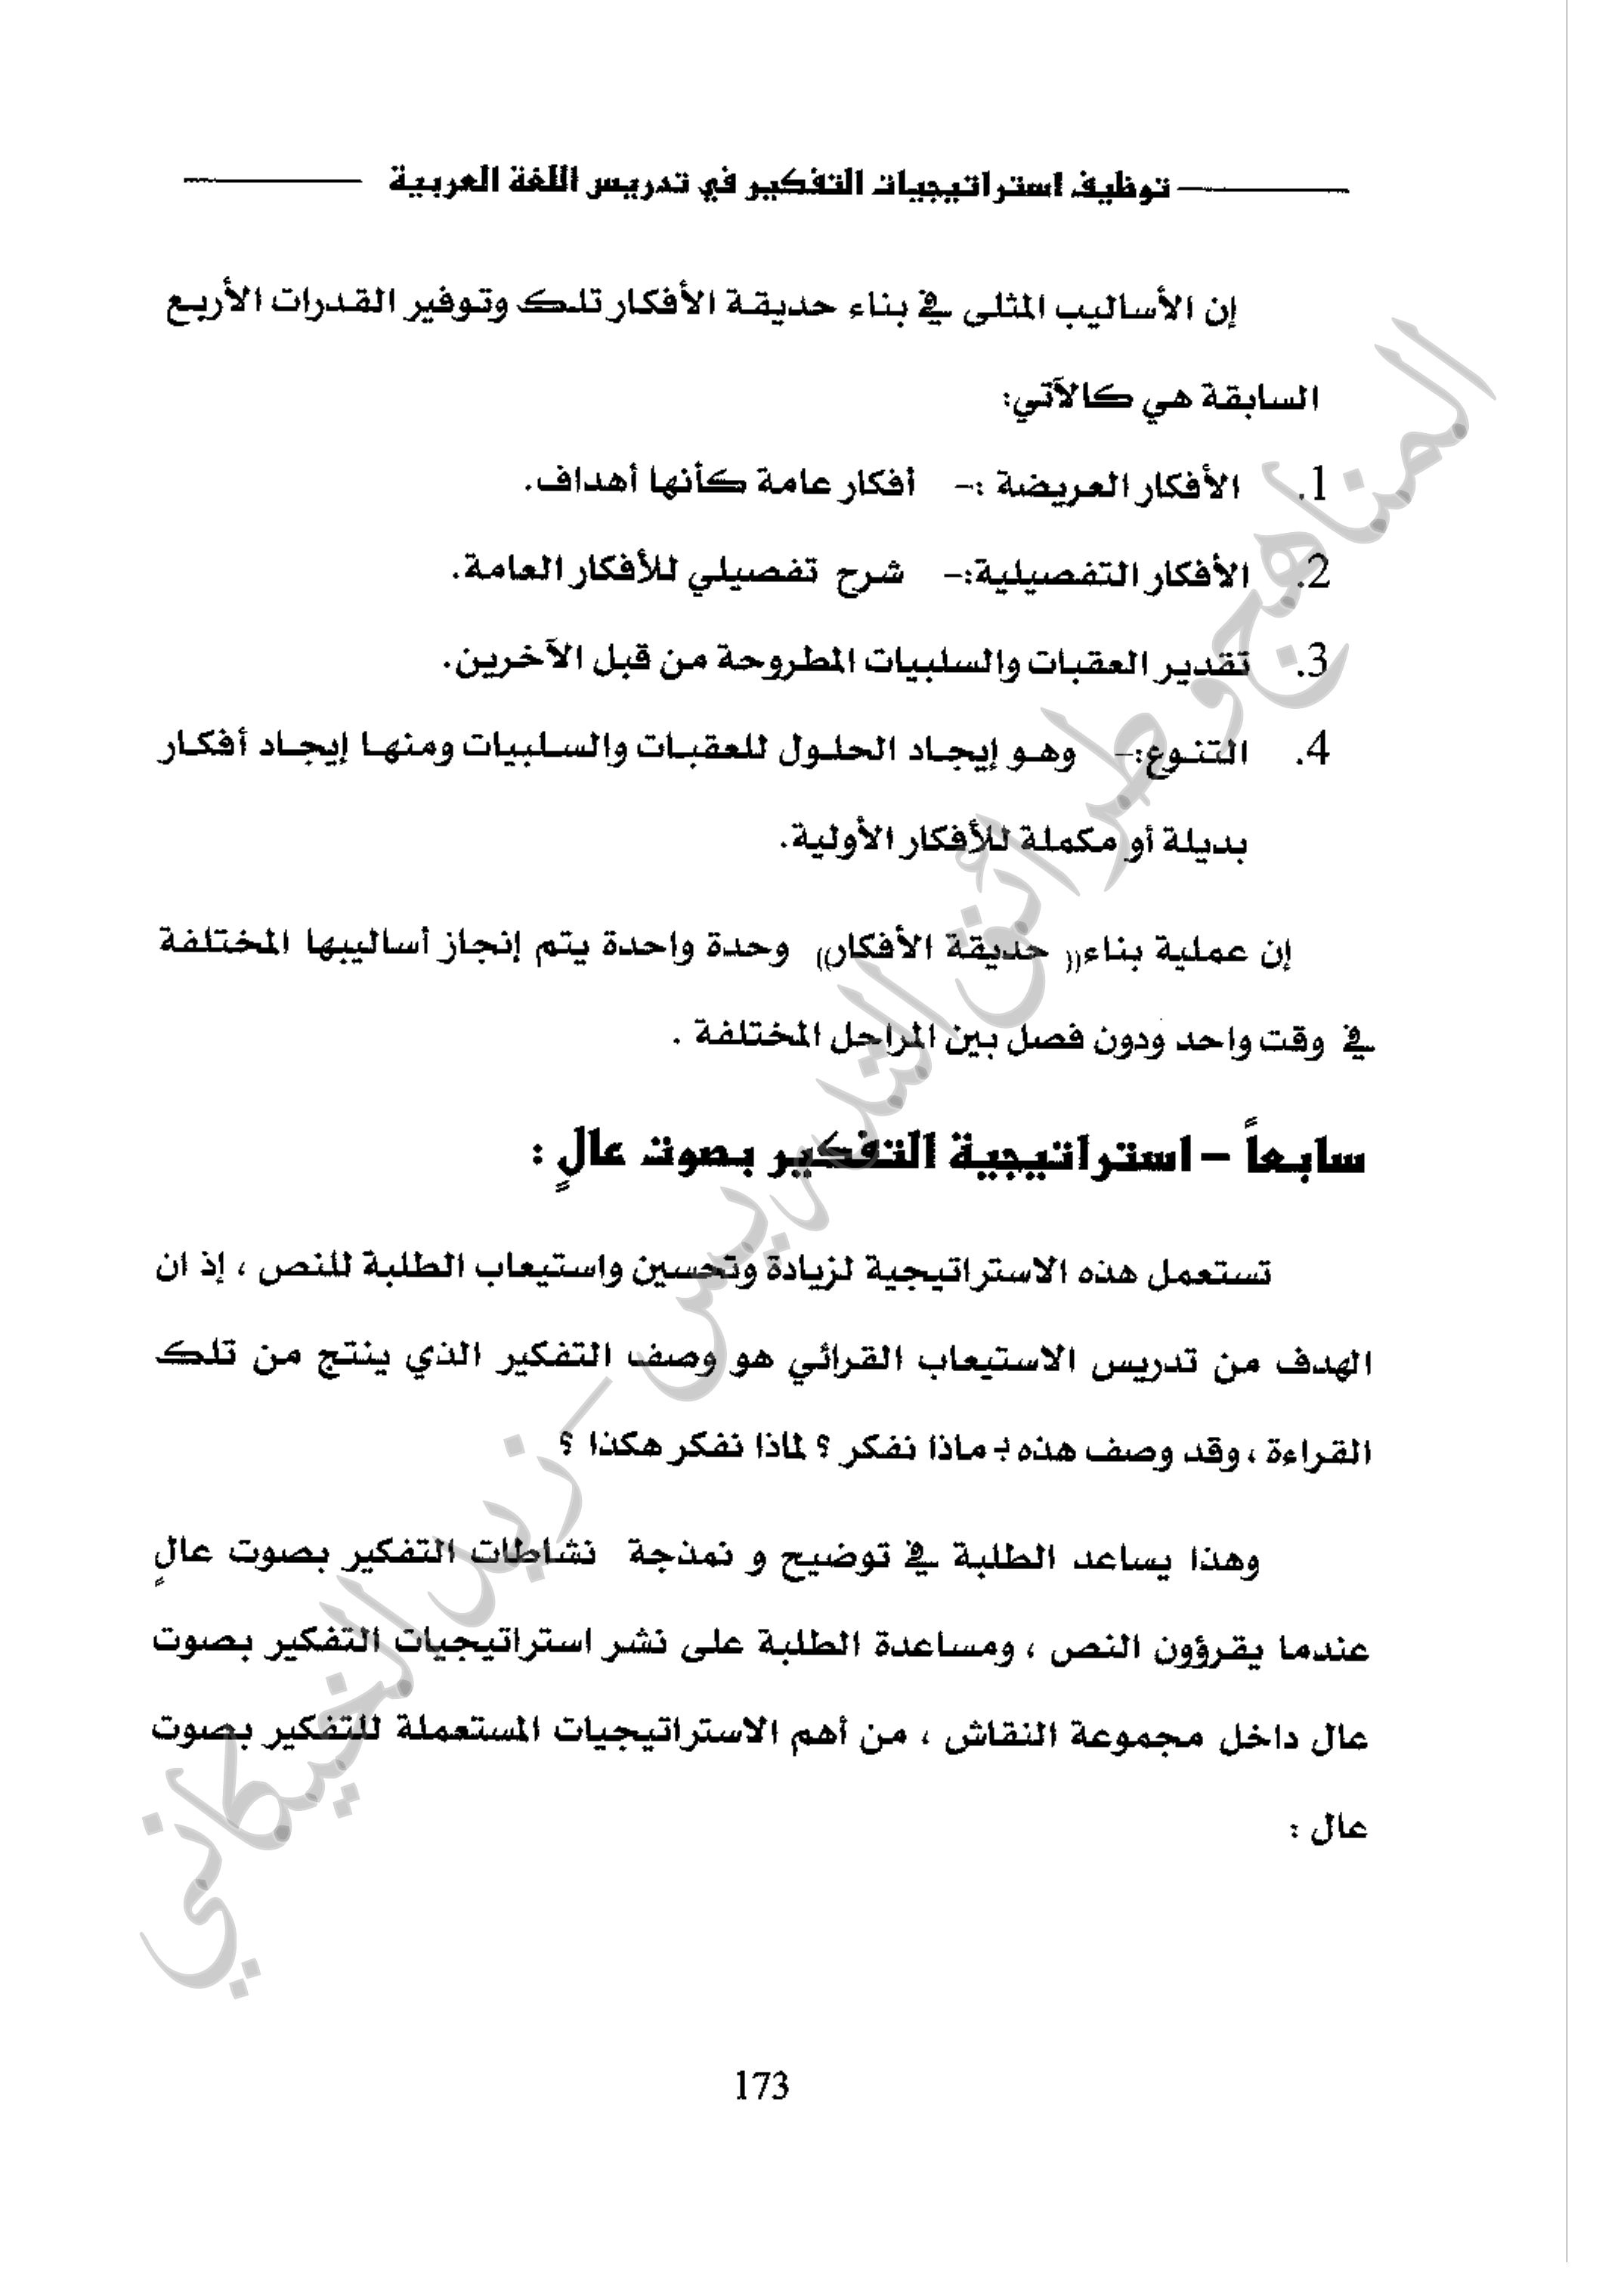 توظيف استراتيجيات التفكير في تدريس اللغة العربية
إن الأساليب المثلى في بناء حديقة الأفكار تلك وتوفير القدرات الأربع
السابقة هي كالآتي:
1. الأفكار العريضة :- أفكار عامة كأنها أهداف.
2. الأفكار التفصيلية:- شرح تفصيلي للأفكار العامة.
3. تقدير العقبات والسلبيات المطروحة من قبل الآخرين.
4. التنوع:- وهو إيجاد الحلول للعقبات والسلبيات ومنها إيجاد أفكار
بديلة أو مكملة للأفكار الأولية.
إن عملية بناء(( حديقة الأفكار)) وحدة واحدة يتم إنجاز أساليبها المختلفة
في وقت واحد ودون فصل بين المراحل المختلفة .
سابعاً – استراتيجية التفكير بصوت عالٍ :
تستعمل هذه الاستراتيجية لزيادة وتحسين واستيعاب الطلبة للنص ، إذ ان
الهدف من تدريس الاستيعاب القرائي هو وصف التفكير الذي ينتج من تلك
القراءة ، وقد وصف هذه بـ ماذا نفكر ؟ لماذا نفكر هكذا ؟
وهذا يساعد الطلبة في توضيح و نمذجة نشاطات التفكير بصوت عالٍ
عندما يقرؤون النص ، ومساعدة الطلبة على نشر استراتيجيات التفكير بصوت
عال داخل مجموعة النقاش ، من أهم الاستراتيجيات المستعملة للتفكير بصوت
عال :
173
المناهج وطرائق التدريس - زيد الخيكاني